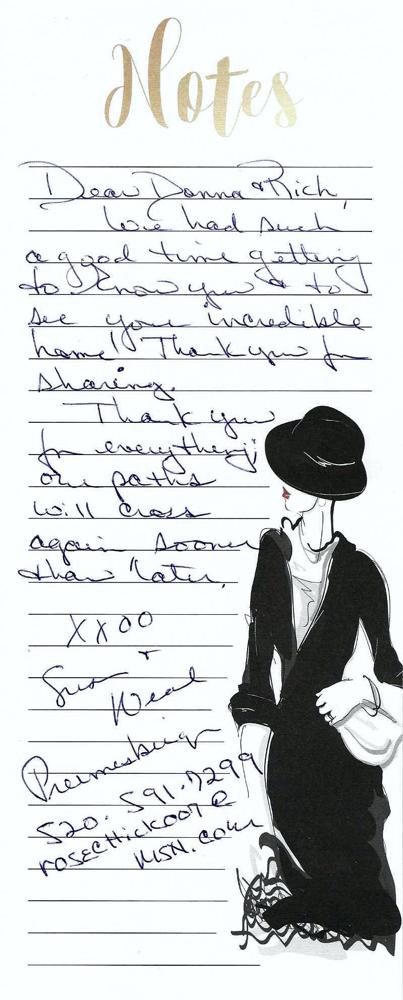 Notes
Dear Donna & Rich,
We had such
a good time getting
to know you & to
see your incredible
home! Thank you for
sharing.
Thank you
for everything;
our paths
will cross
again sooner
than later.
XXOO
Susan +
520. 591.7299
rosechick007@
msn.com